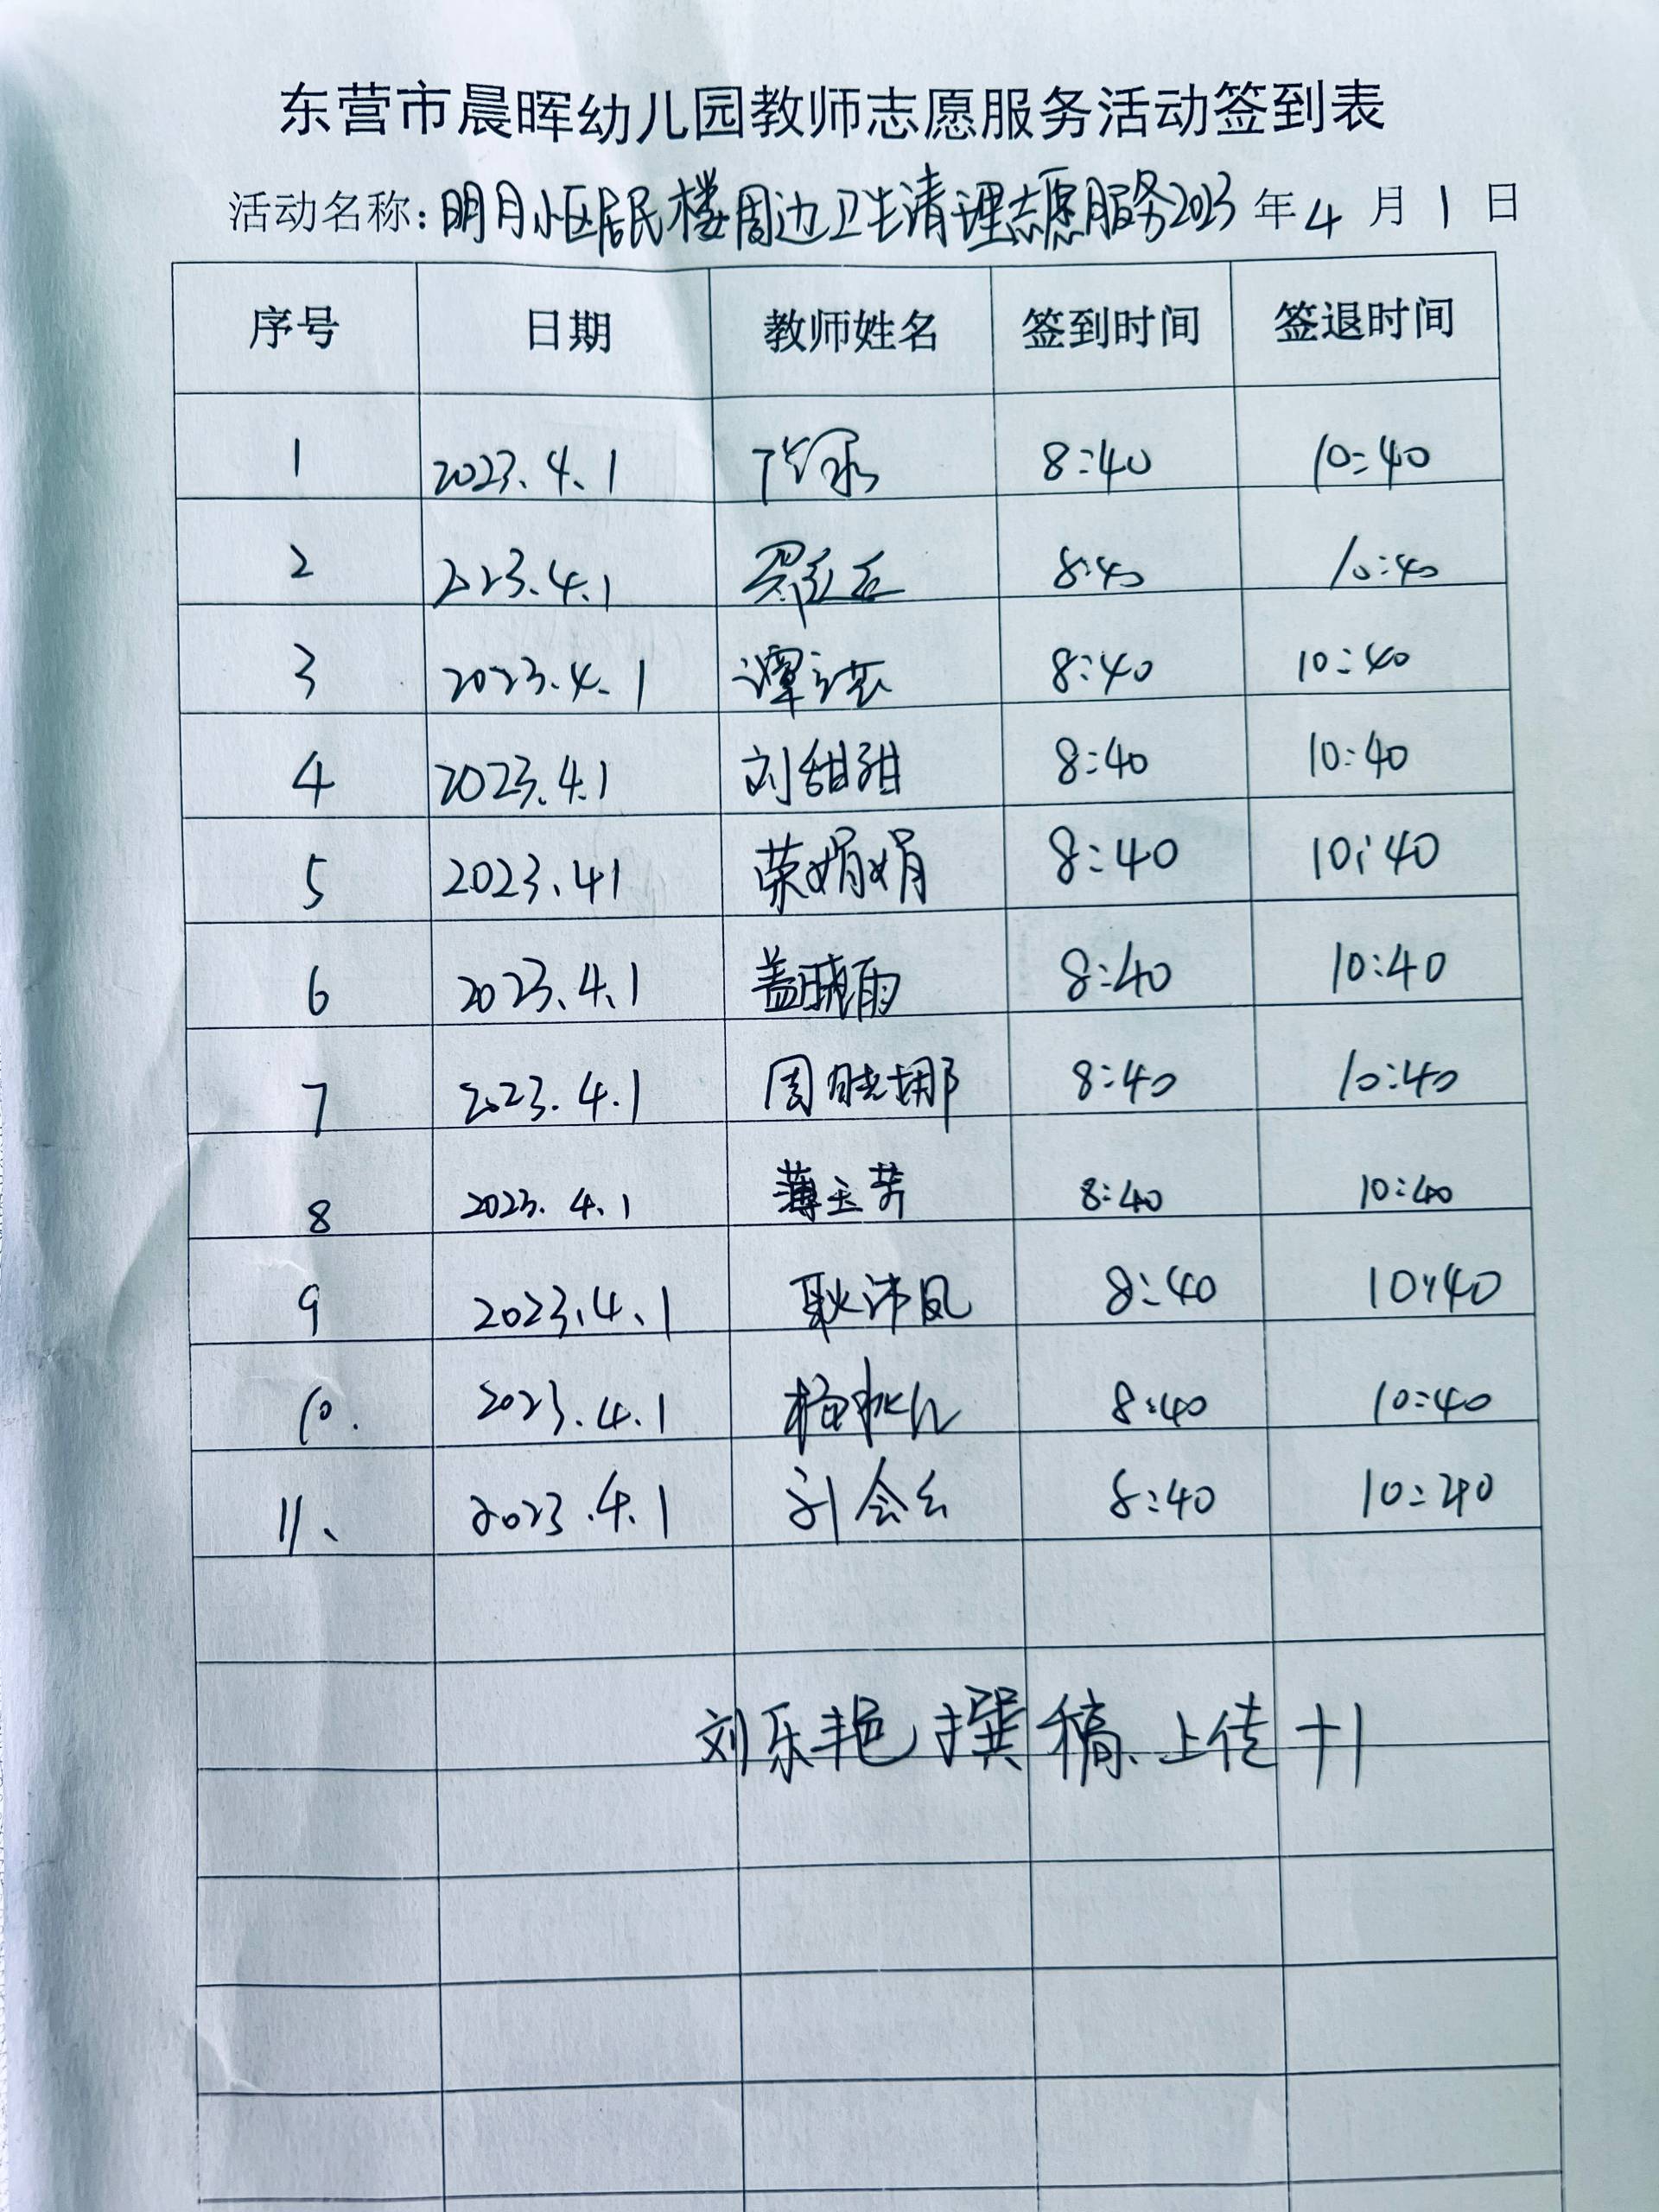 东营市晨晖幼儿园教师志愿服务活动签到表
活动名称:明月小区居民楼周边卫生清理志愿服务2023年4月1日
序号 日期 教师姓名 签到时间 签退时间
1 2023.4.1 8:40 10:40
2 2023.4.1 8:40 10:40
3 2023.4.1 谭 8:40 10:40
4 2023.4.1 刘甜甜 8:40 10:40
5 2023.41 荣娟娟 8:40 10:40
6 2023.4.1 盖晓雨 8:40 10:40
7 2023.4.1 周晓娜 8:40 10:40
8 2023.4.1 薄玉芳 8:40 10:40
9 2023.4.1 耿沛凤 8:40 10:40
10. 2023.4.1 杨 8:40 10:40
11、 2023.4.1 刘会云 8:40 10:40
刘乐艳 撰稿、上传 +1